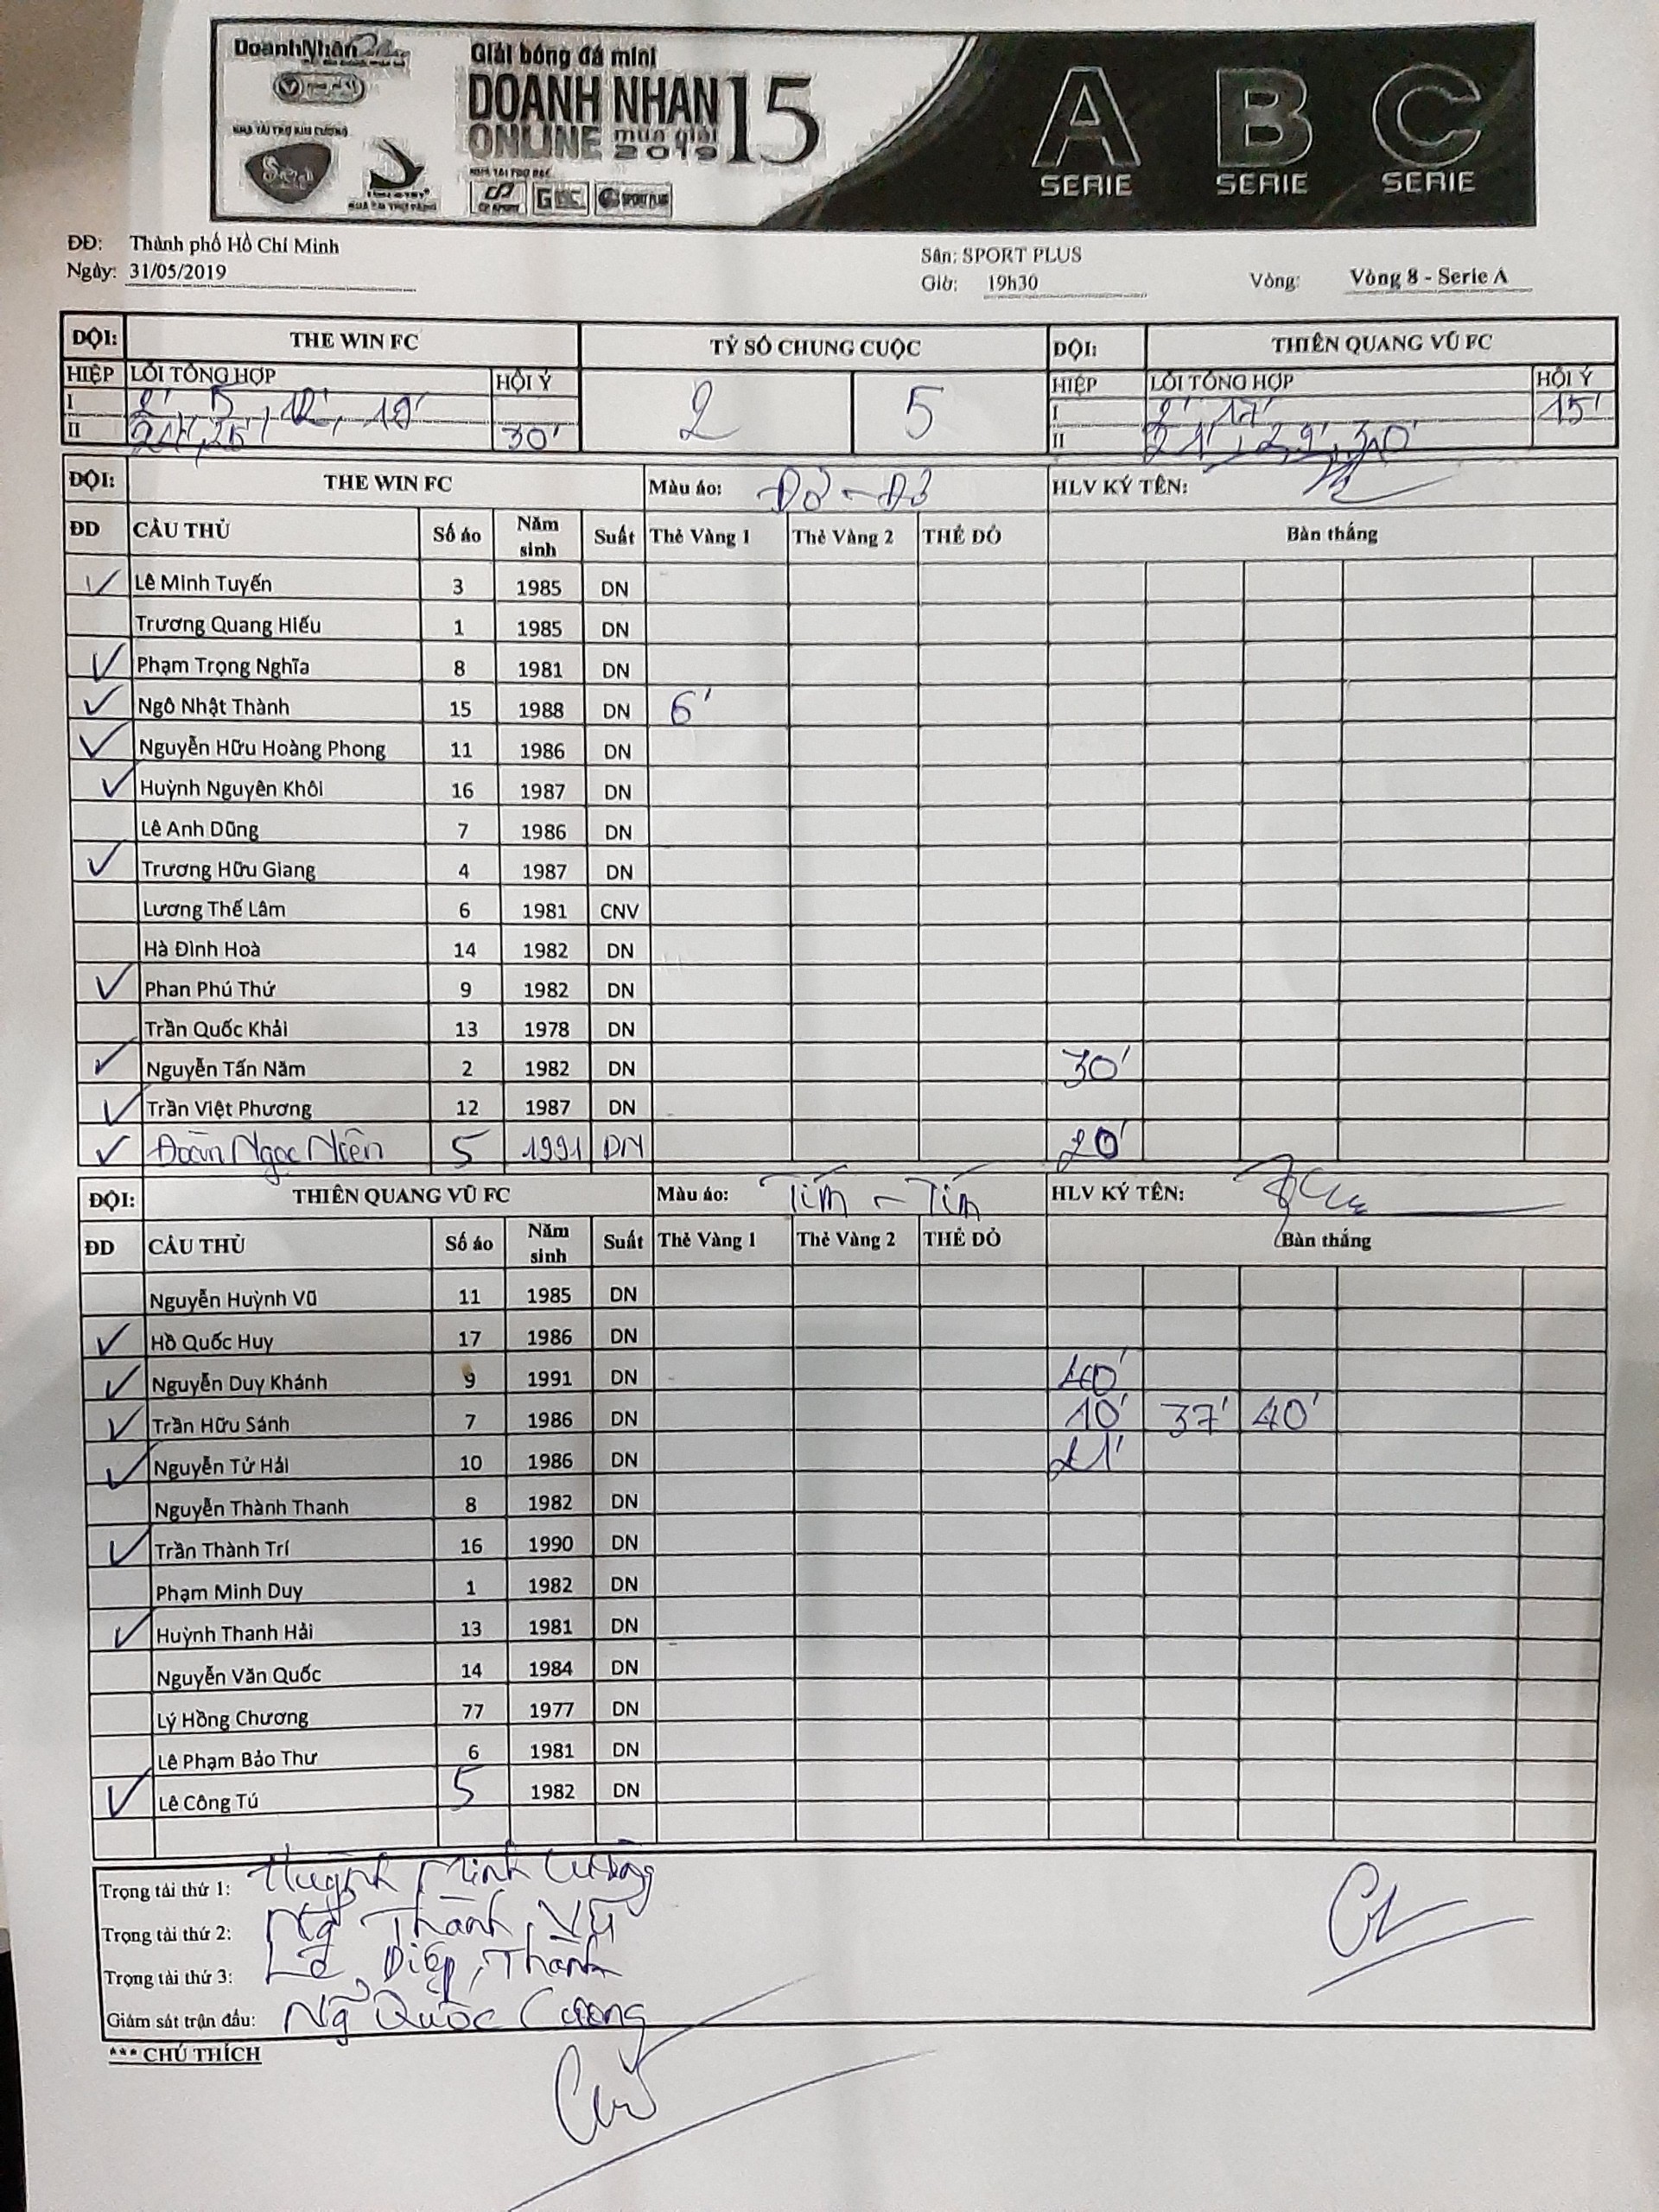 DoanhNhân
NHÀ TÀI TRỢ KIM CƯƠNG
Giải bóng đá mini
DOANH NHAN 15
ONLINE mùa giải 2019
NHÀ TÀI TRỢ BẠC
CP SPORT
SPORT PLUS
A B C
SERIE SERIE SERIE
ĐĐ: Thành phố Hồ Chí Minh Sân: SPORT PLUS
Ngày: 31/05/2019 Giờ: 19h30 Vòng: Vòng 8 - Serie A
ĐỘI: THE WIN FC TỶ SỐ CHUNG CUỘC ĐỘI: THIÊN QUANG VŨ FC
HIỆP LỖI TỔNG HỢP HỘI Ý 2 5 HIỆP LỖI TỔNG HỢP HỘI Ý
I 2' 5' 12', 19' I 2' 17' 15'
II 25' 30' II 21', 29', 30'
ĐỘI: THE WIN FC Màu áo: Đỏ - Đỏ HLV KÝ TÊN:
ĐD CẦU THỦ Số áo Năm sinh Suất Thẻ Vàng 1 Thẻ Vàng 2 THẺ ĐỎ Bàn thắng
Lê Minh Tuyến 3 1985 DN
Trương Quang Hiếu 1 1985 DN
Phạm Trọng Nghĩa 8 1981 DN
Ngô Nhật Thành 15 1988 DN 6'
Nguyễn Hữu Hoàng Phong 11 1986 DN
Huỳnh Nguyên Khôi 16 1987 DN
Lê Anh Dũng 7 1986 DN
Trương Hữu Giang 4 1987 DN
Lương Thế Lâm 6 1981 CNV
Hà Đình Hoà 14 1982 DN
Phan Phú Thứ 9 1982 DN
Trần Quốc Khải 13 1978 DN
Nguyễn Tấn Năm 2 1982 DN 30'
Trần Việt Phương 12 1987 DN
Đoàn Ngọc Niên 5 1991 DN 20'
ĐỘI: THIÊN QUANG VŨ FC Màu áo: Tím - Tím HLV KÝ TÊN:
ĐD CẦU THỦ Số áo Năm sinh Suất Thẻ Vàng 1 Thẻ Vàng 2 THẺ ĐỎ Bàn thắng
Nguyễn Huỳnh Vũ 11 1985 DN
Hồ Quốc Huy 17 1986 DN
Nguyễn Duy Khánh 9 1991 DN 40'
Trần Hữu Sánh 7 1986 DN 10' 37' 40'
Nguyễn Tử Hải 10 1986 DN 21'
Nguyễn Thành Thanh 8 1982 DN
Trần Thành Trí 16 1990 DN
Phạm Minh Duy 1 1982 DN
Huỳnh Thanh Hải 13 1981 DN
Nguyễn Văn Quốc 14 1984 DN
Lý Hồng Chương 77 1977 DN
Lê Phạm Bảo Thư 6 1981 DN
Lê Công Tú 5 1982 DN
Trọng tài thứ 1: Huỳnh Minh Cường
Trọng tài thứ 2: Ng Thành Vũ
Trọng tài thứ 3: Lê Điệp Thành
Giám sát trận đấu: Ng Quốc Cường
*** CHÚ THÍCH